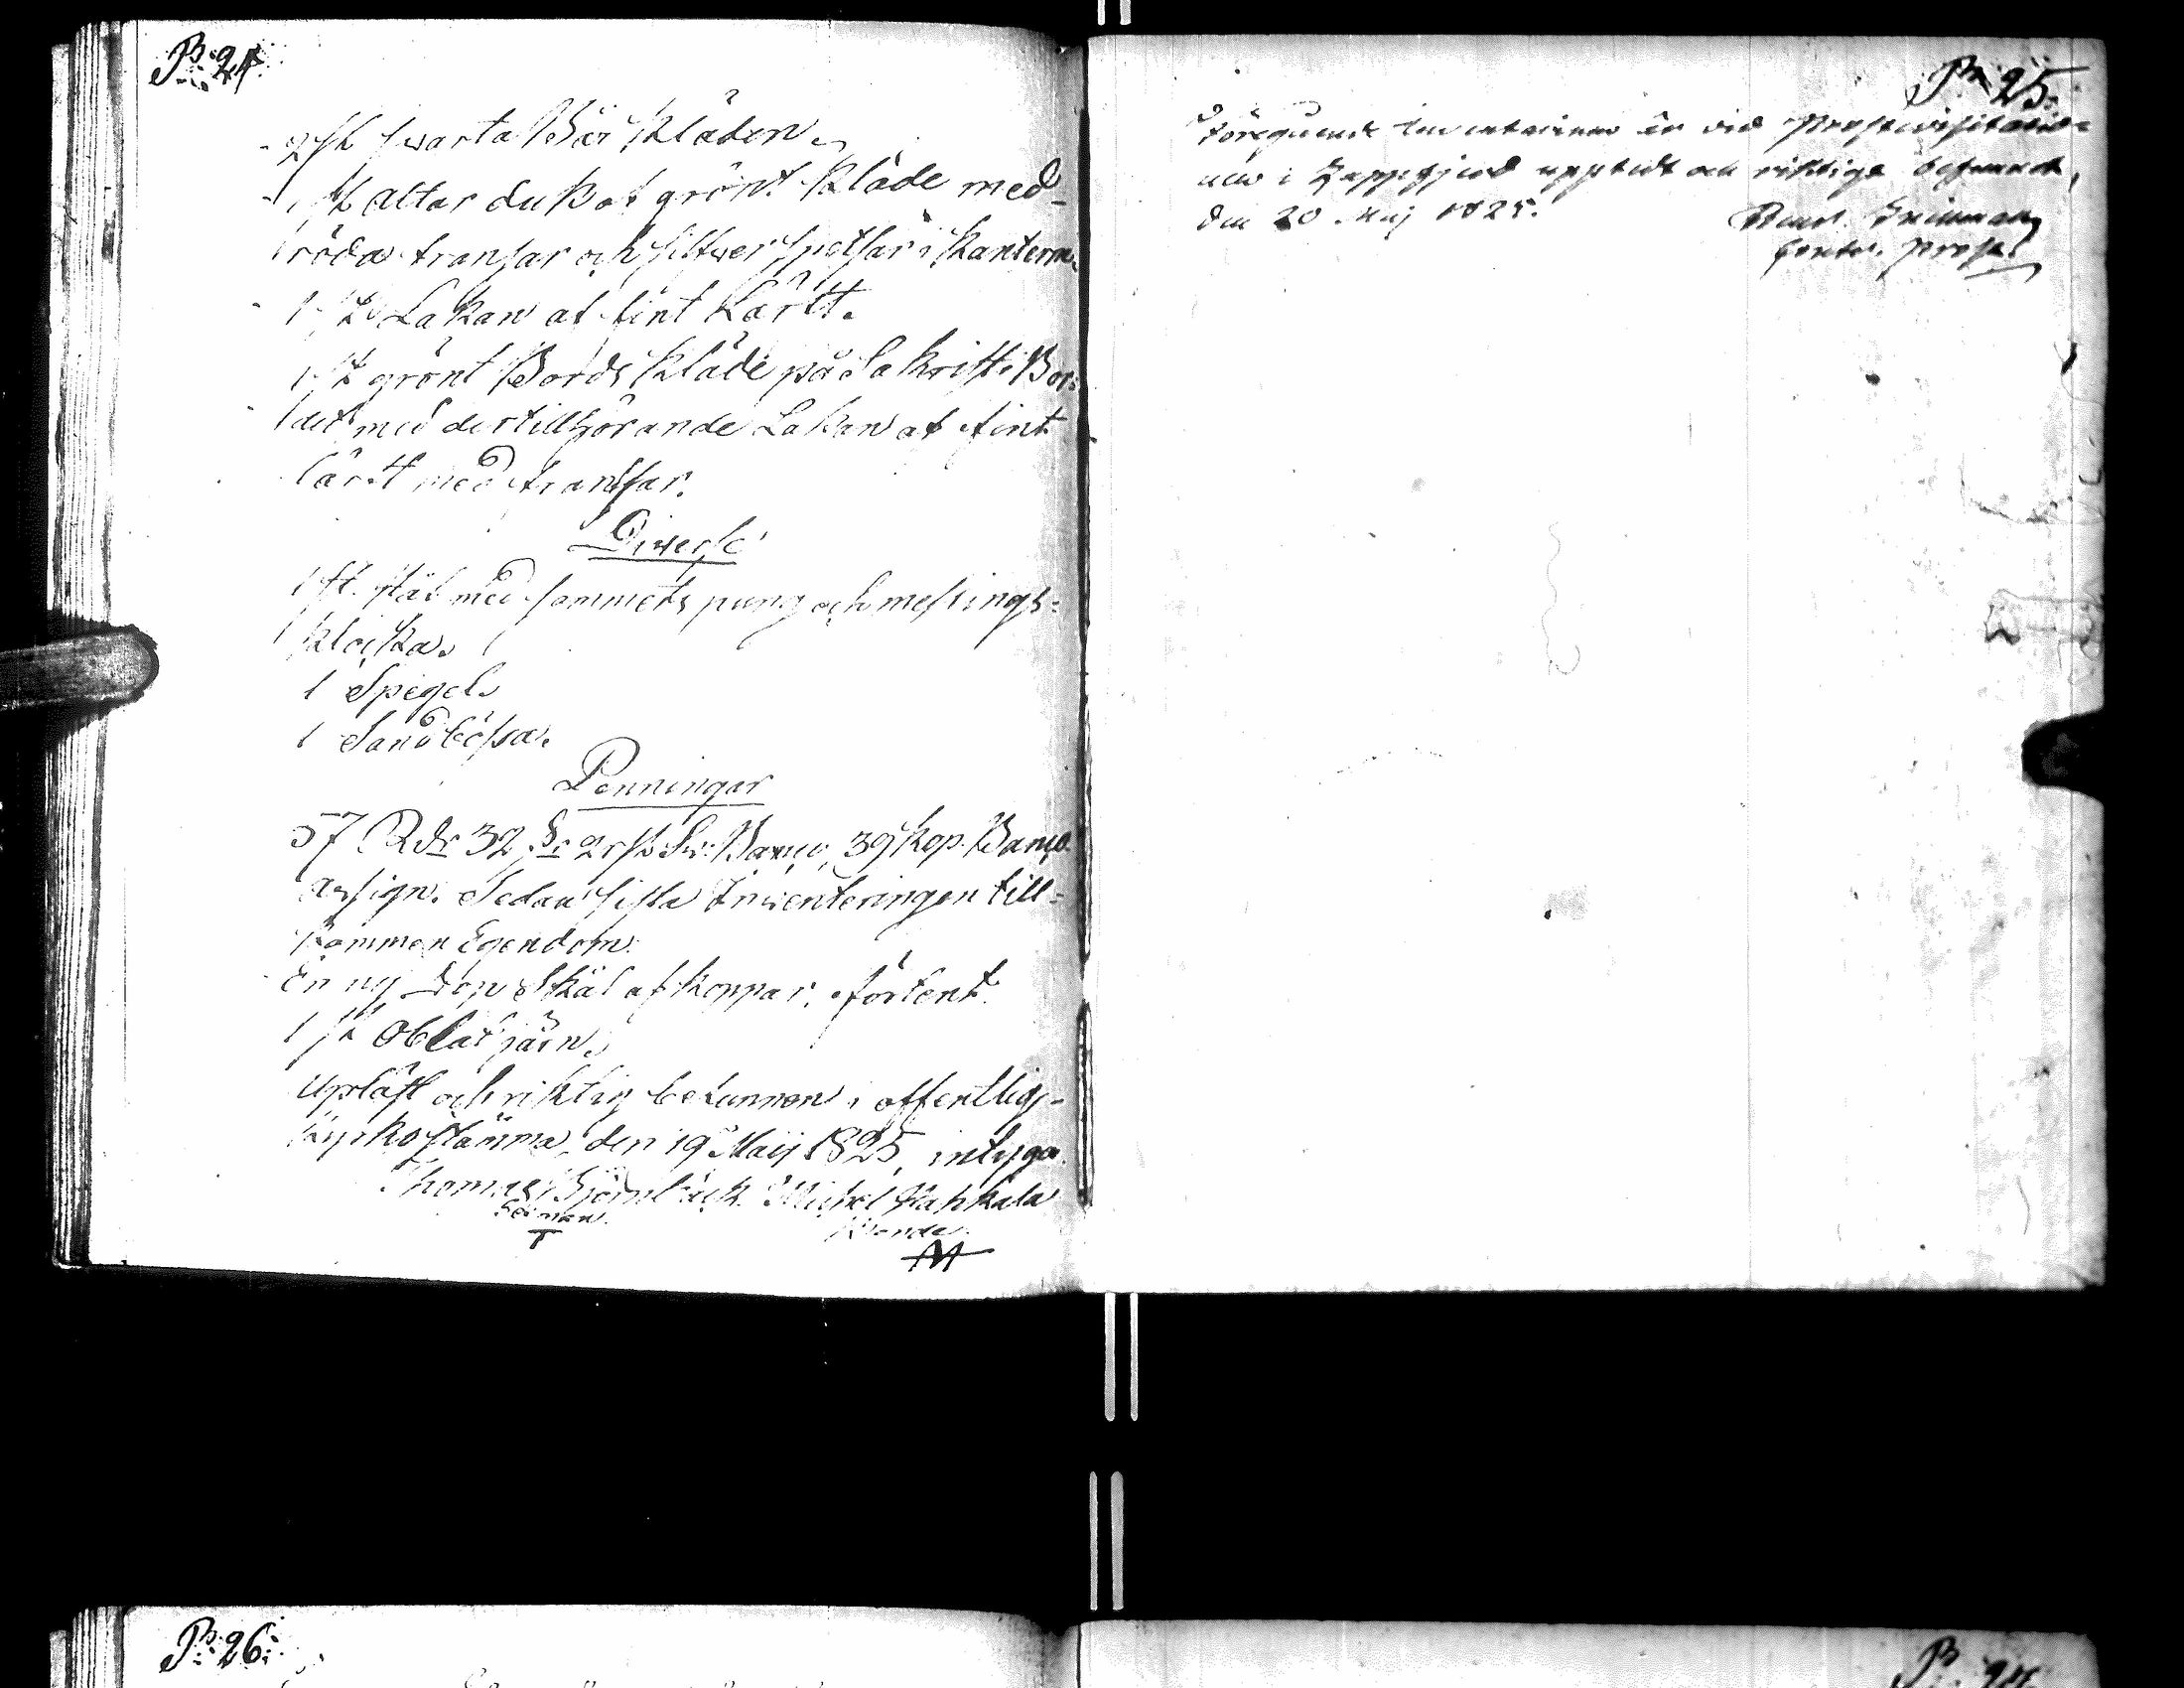 P. 24
2 st swarta Bår Kläden
1 st altar duk af grönt Kläde med
röda fransar och silfwer spetsar i kanterna
1 st Lakan af fint Lärft.
1 st grönt Bords Kläde på Sakrist. Bor=
det med dertillhörande Lakan af fint
lärft med fransar.
Diverse
1 st. Håf med sammets pung och messings=
klocka.
1 Spegel.
1 Sandbössa.
Penningar
57 Rdr 32 sk 2 rst Sv: Banco, 39 Kop. Banco
assign. Sedan sista Inventeringen till=
kommen Egendom.
En ny Dop Skål af Koppar, förtent.
1 st Oblat järn.
Upläst och riktig befunnen i offentlig
Kyrkostämma, den 19 Maij 1825, intyga
Thomas Michel
Bonde
M
P. 25.
Föregående Inventarium är vid Prostvisitatio=
nen i uppläst och riktige befunnet,
den 20 Maj 1825.
Contr. Prost
P. 26.